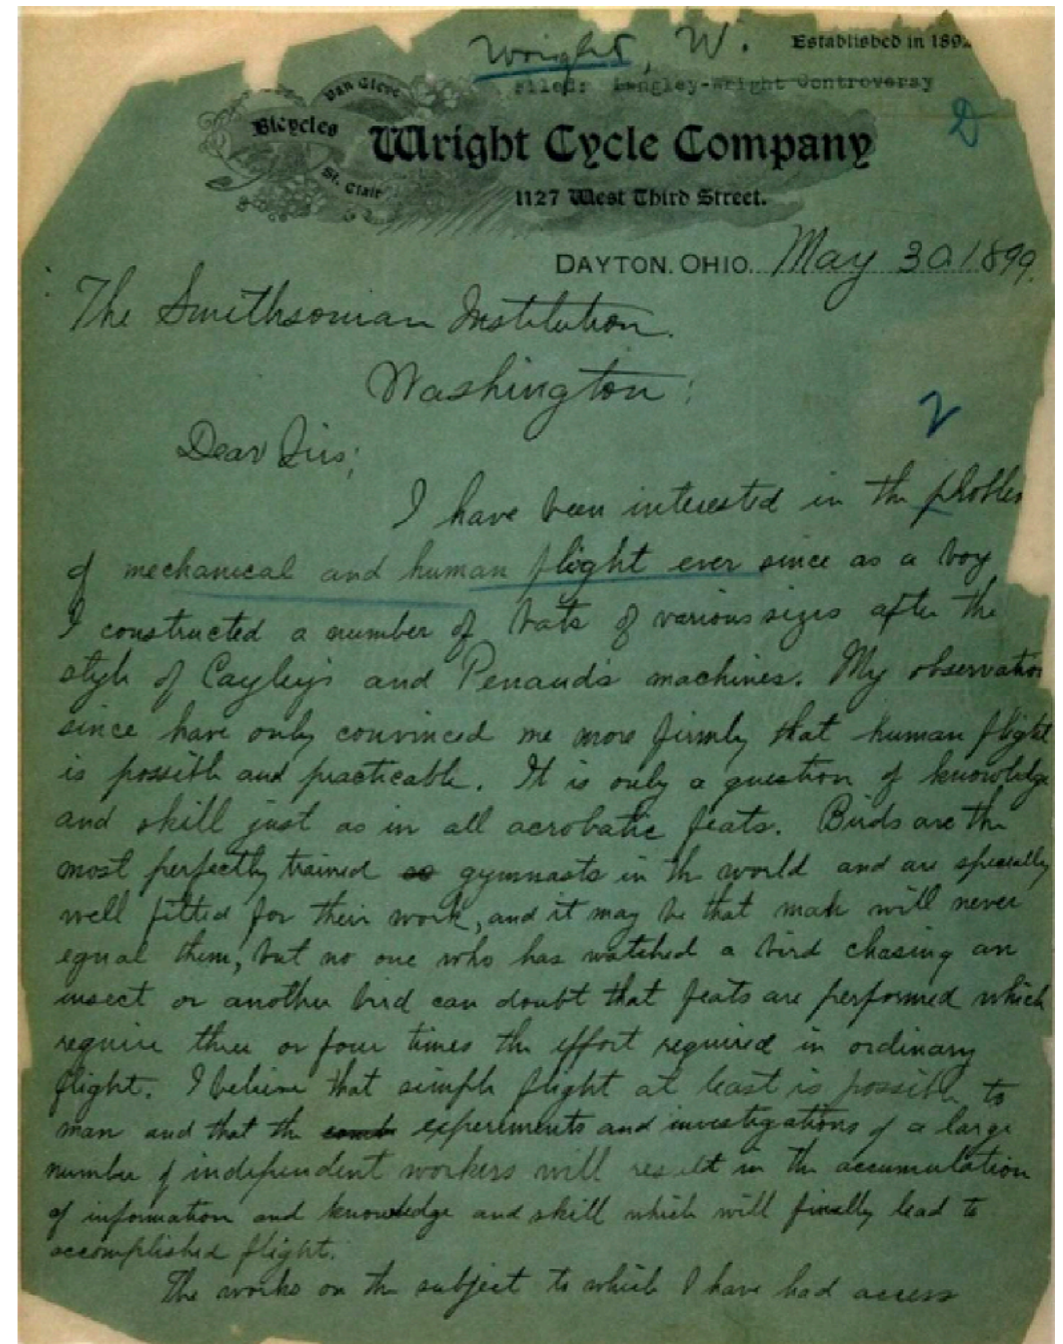 Wright, W.
Established in 189
Filed: Langley-Wright Controversy
D
Van Cleve
Bicycles
St. Clair
Wright Cycle Company
1127 West Third Street.
DAYTON. OHIO. May 30. 1899.
The Smithsonian Institution.
Washington;
2
Dear Sirs;
I have been interested in the problem
of mechanical and human flight ever since as a boy
I constructed a number of bats of various sizes after the
style of Cayley's and Penaud's machines. My observation
since have only convinced me more firmly that human flight
is possible and practicable. It is only a question of knowledge
and skill just as in all acrobatic feats. Birds are the
most perfectly trained gymnasts in the world and are specially
well fitted for their work, and it may be that man will never
equal them, but no one who has watched a bird chasing an
insect or another bird can doubt that feats are performed which
require three or four times the effort required in ordinary
flight. I believe that simple flight at least is possible to
man and that the experiments and investigations of a large
number of independent workers will result in the accumulation
of information and knowledge and skill which will finally lead to
accomplished flight.
The works on the subject to which I have had access